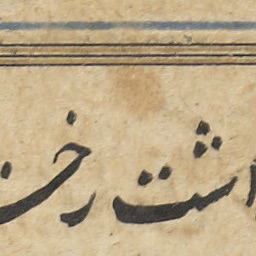 اشت رخ